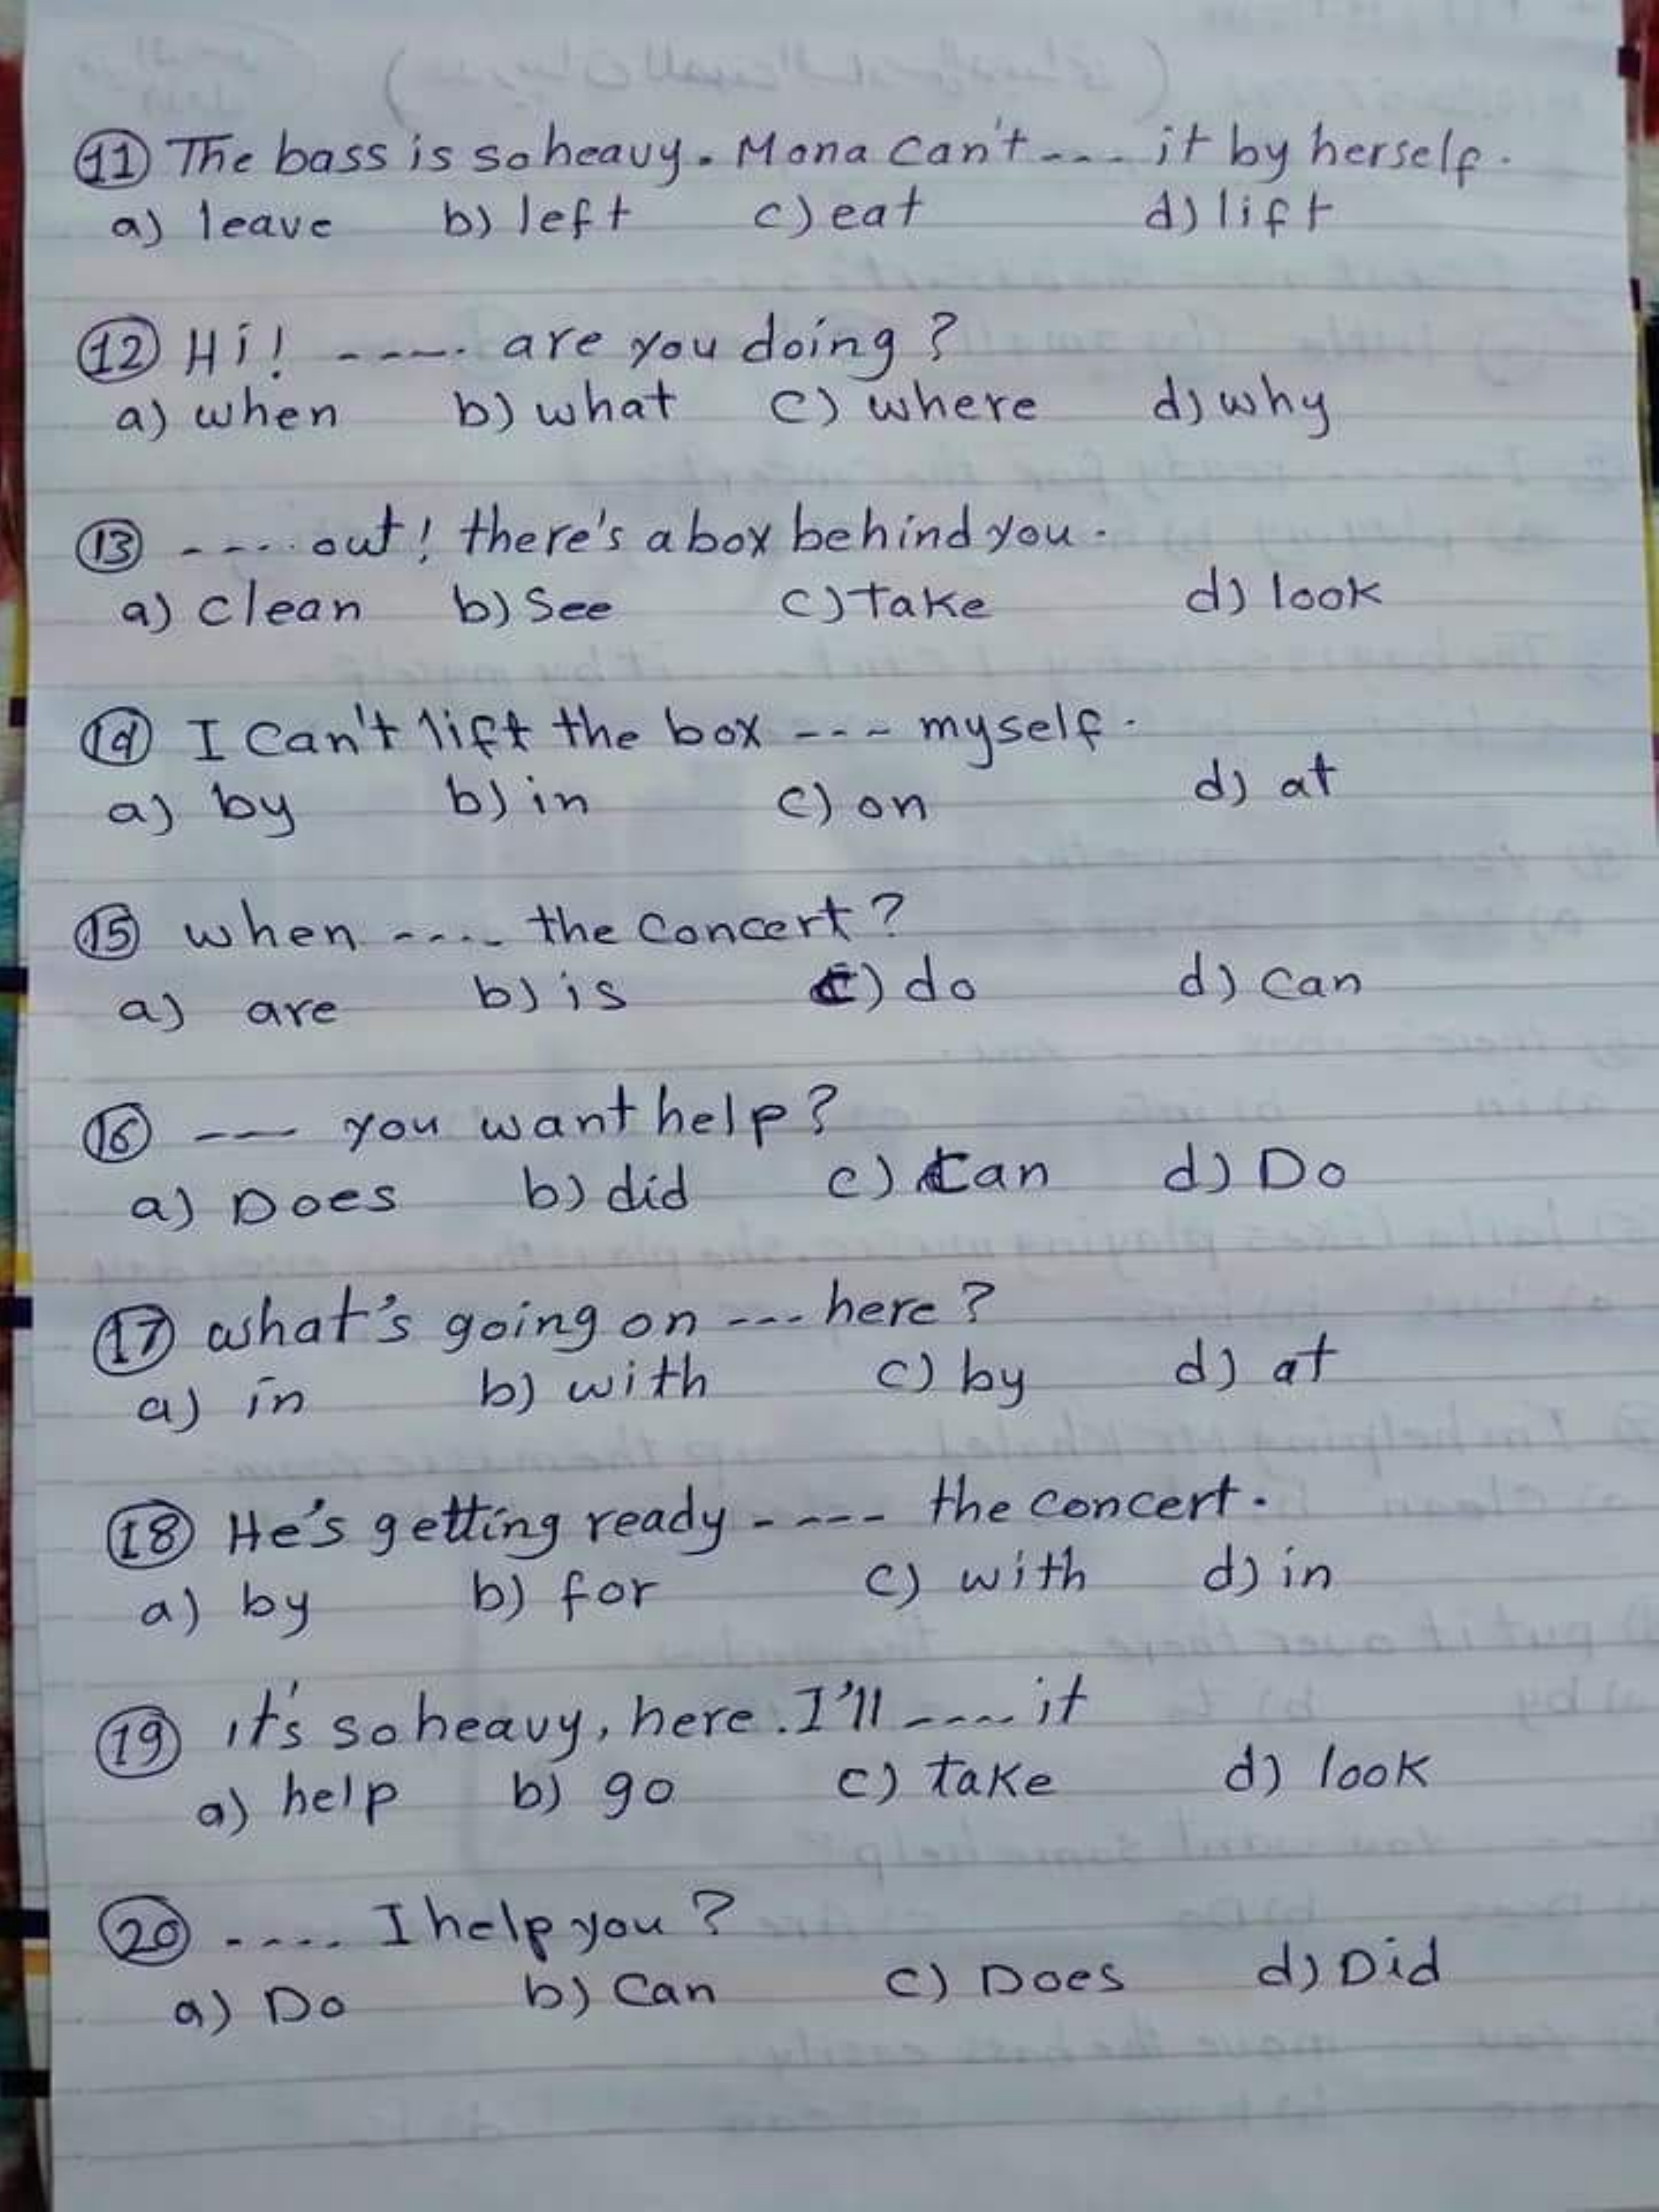 11 The bass is so heavy. Mona can't .... it by herself.
a) leave b) left c) eat d) lift
12 Hi! ..... are you doing?
a) when b) what c) where d) why
13 ..... out! there's a box behind you.
a) clean b) See c) Take d) look
14 I can't lift the box ... myself.
a) by b) in c) on d) at
15 when .... the concert?
a) are b) is c) do d) can
16 --- you want help?
a) Does b) did c) Can d) Do
17 what's going on ... here?
a) in b) with c) by d) at
18 He's getting ready ..... the concert.
a) by b) for c) with d) in
19 it's so heavy, here. I'll .... it
a) help b) go c) take d) look
20 ..... I help you?
a) Do b) Can c) Does d) Did